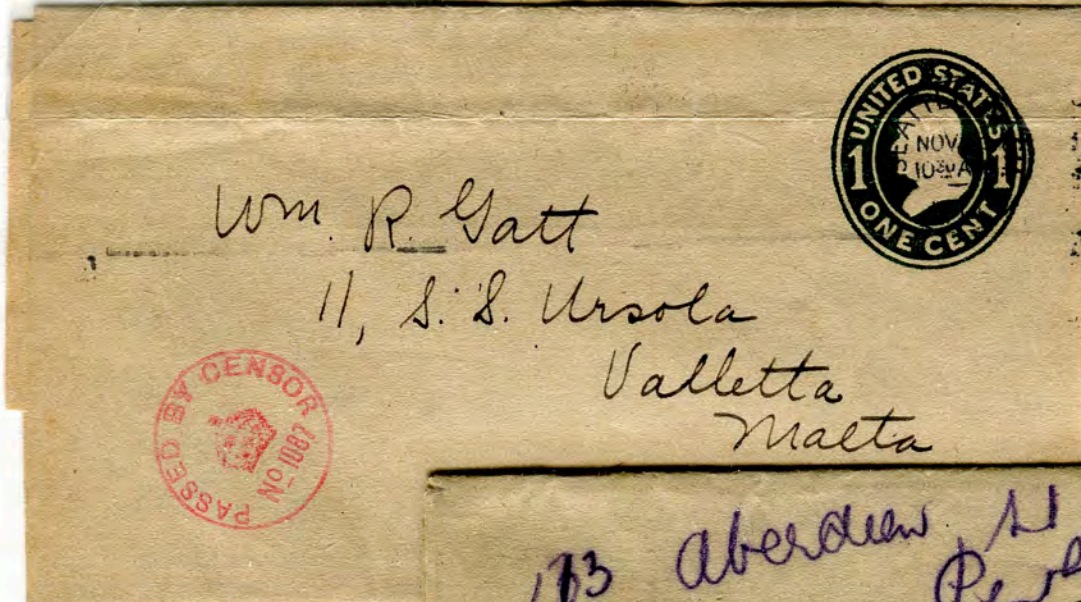 UNITED STATES
SEATTLE
NOV
10 30 A
1 1
ONE CENT
Wm. R. Gatt
11, S. S. Ursola
Valletta
Malta
PASSED BY CENSOR
No 1087
Aberdeen St